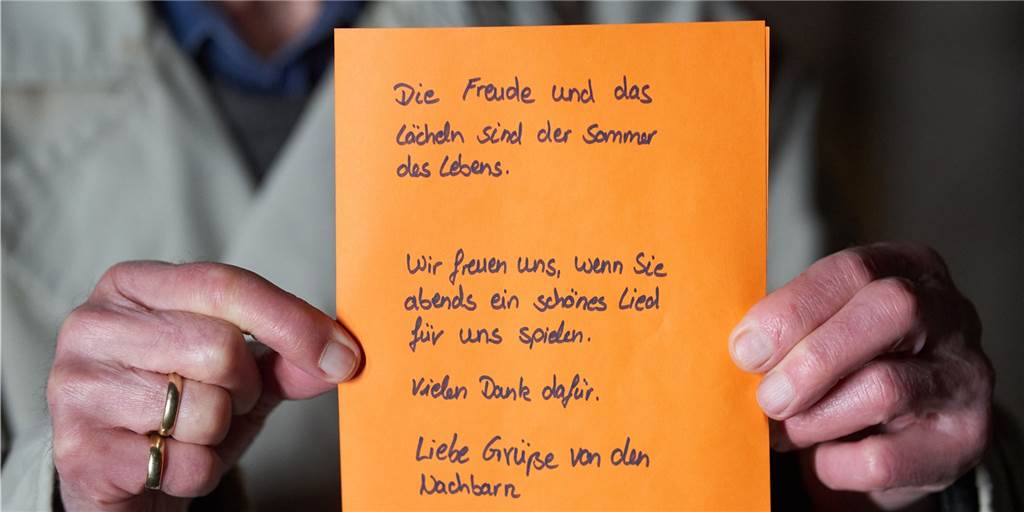 Die Freude und das
Lächeln sind der Sommer
des Lebens.
Wir freuen uns, wenn Sie
abends ein schönes Lied
für uns spielen.
Vielen Dank dafür.
Liebe Grüße von den
Nachbarn